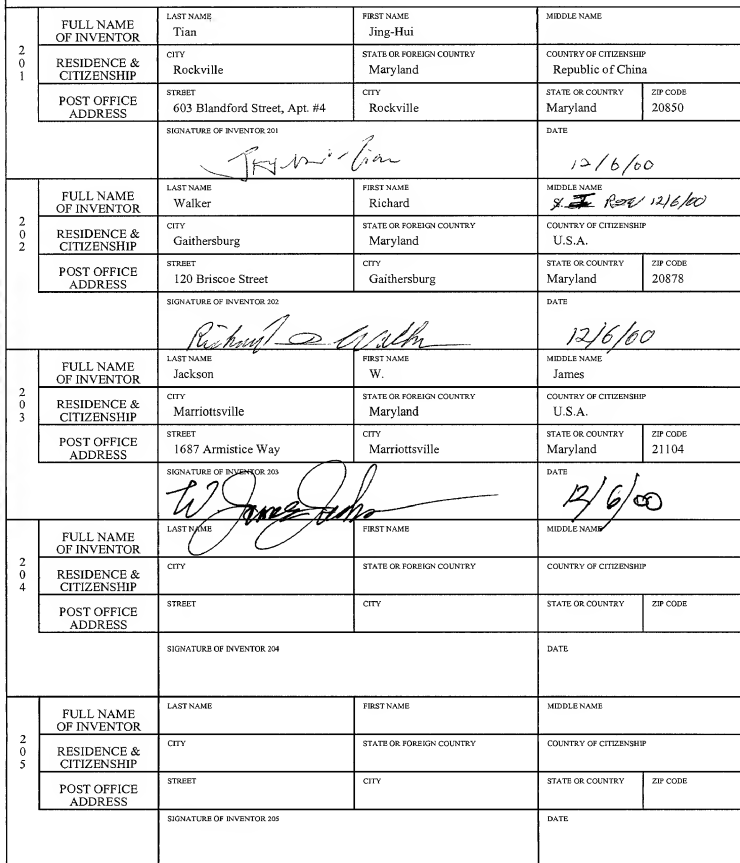 201
FULL NAME OF INVENTOR
LAST NAME
Tian
FIRST NAME
Jing-Hui
MIDDLE NAME
RESIDENCE & CITIZENSHIP
CITY
Rockville
STATE OR FOREIGN COUNTRY
Maryland
COUNTRY OF CITIZENSHIP
Republic of China
POST OFFICE ADDRESS
STREET
603 Blandford Street, Apt. #4
CITY
Rockville
STATE OR COUNTRY
Maryland
ZIP CODE
20850
SIGNATURE OF INVENTOR 201
DATE
12/6/00
202
FULL NAME OF INVENTOR
LAST NAME
Walker
FIRST NAME
Richard
MIDDLE NAME
12/6/00
RESIDENCE & CITIZENSHIP
CITY
Gaithersburg
STATE OR FOREIGN COUNTRY
Maryland
COUNTRY OF CITIZENSHIP
U.S.A.
POST OFFICE ADDRESS
STREET
120 Briscoe Street
CITY
Gaithersburg
STATE OR COUNTRY
Maryland
ZIP CODE
20878
SIGNATURE OF INVENTOR 202
DATE
12/6/00
203
FULL NAME OF INVENTOR
LAST NAME
Jackson
FIRST NAME
W.
MIDDLE NAME
James
RESIDENCE & CITIZENSHIP
CITY
Marriottsville
STATE OR FOREIGN COUNTRY
Maryland
COUNTRY OF CITIZENSHIP
U.S.A.
POST OFFICE ADDRESS
STREET
1687 Armistice Way
CITY
Marriottsville
STATE OR COUNTRY
Maryland
ZIP CODE
21104
SIGNATURE OF INVENTOR 203
DATE
12/6/00
204
FULL NAME OF INVENTOR
LAST NAME
FIRST NAME
MIDDLE NAME
RESIDENCE & CITIZENSHIP
CITY
STATE OR FOREIGN COUNTRY
COUNTRY OF CITIZENSHIP
POST OFFICE ADDRESS
STREET
CITY
STATE OR COUNTRY
ZIP CODE
SIGNATURE OF INVENTOR 204
DATE
205
FULL NAME OF INVENTOR
LAST NAME
FIRST NAME
MIDDLE NAME
RESIDENCE & CITIZENSHIP
CITY
STATE OR FOREIGN COUNTRY
COUNTRY OF CITIZENSHIP
POST OFFICE ADDRESS
STREET
CITY
STATE OR COUNTRY
ZIP CODE
SIGNATURE OF INVENTOR 205
DATE